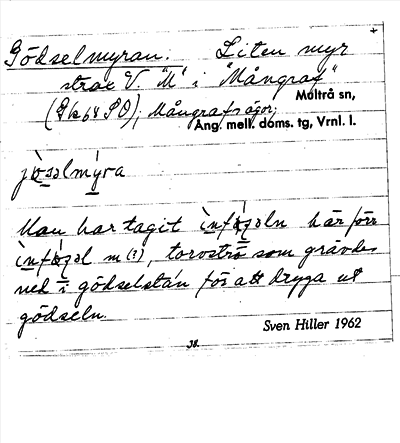 Gödselmyran. Liten myr
strax V. "M" i "Mångraf"
(8h68SO); Mångrafsägor;
Multrå sn,
Ång. mell. doms. tg, Vrnl. l.
Man har tagit här förr
m (?), torvströ som grävdes
ned i gödselstan för att dryga ut
gödseln.
Sven Hiller 1962